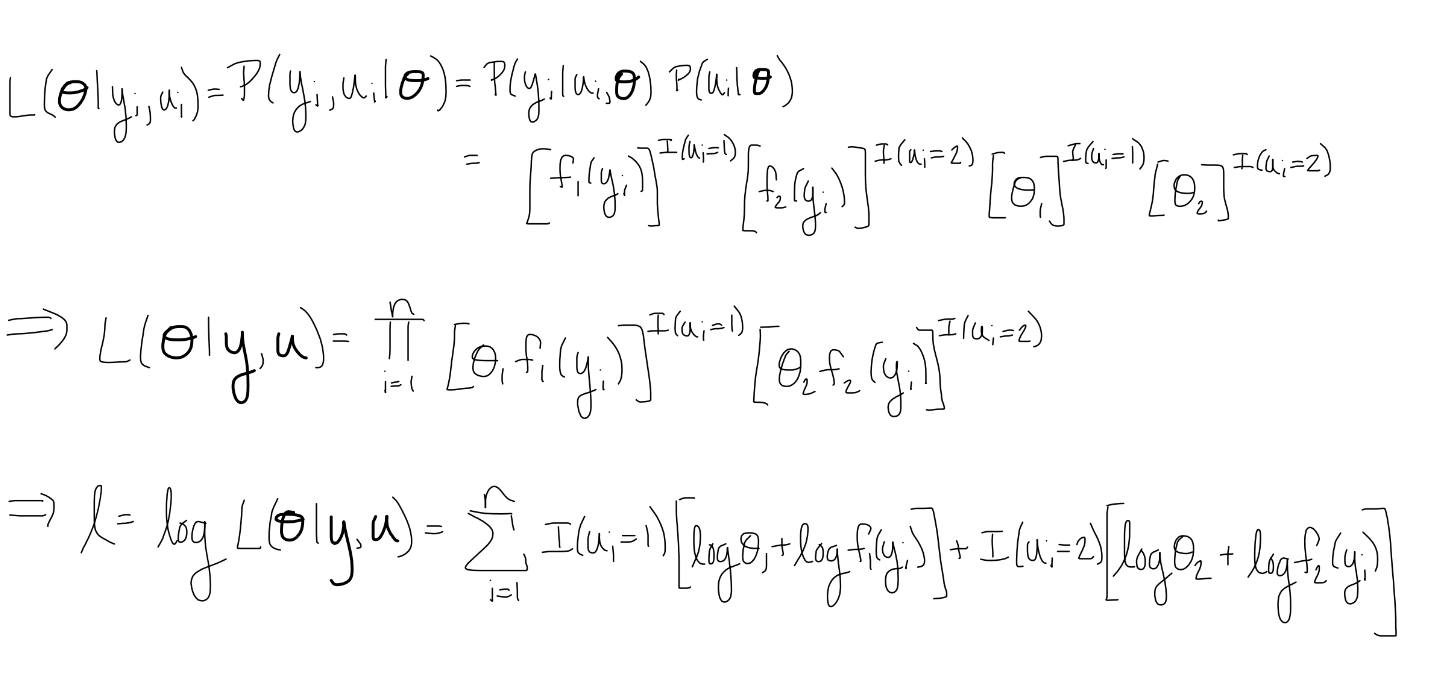 L(θ|yᵢ,uᵢ) = P(yᵢ,uᵢ|θ) = P(yᵢ|uᵢ,θ) P(uᵢ|θ)
= [f₁(yᵢ)]^{I(uᵢ=1)} [f₂(yᵢ)]^{I(uᵢ=2)} [θ₁]^{I(uᵢ=1)} [θ₂]^{I(uᵢ=2)}
⇒ L(θ|y,u) = ∏_{i=1}^{n} [θ₁f₁(yᵢ)]^{I(uᵢ=1)} [θ₂f₂(yᵢ)]^{I(uᵢ=2)}
⇒ l = log L(θ|y,u) = ∑_{i=1}^{n} I(uᵢ=1)[logθ₁+logf₁(yᵢ)] + I(uᵢ=2)[logθ₂ + logf₂(yᵢ)]